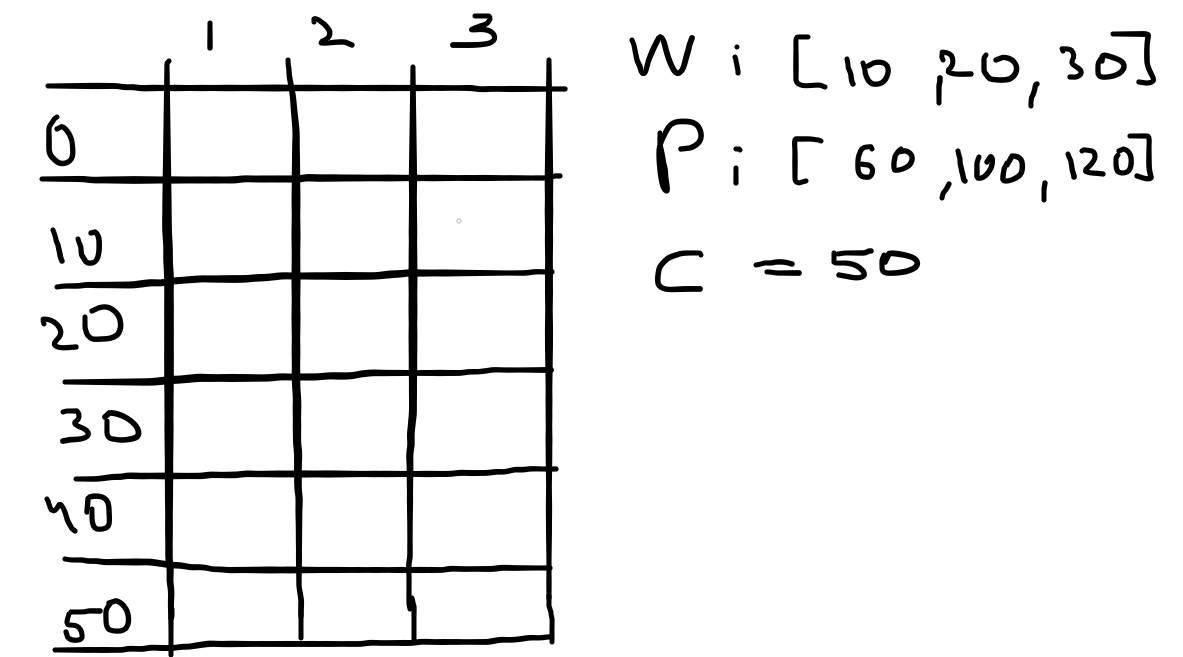 1 2 3
0
10
20
30
40
50
W i [10, 20, 30]
P i [60, 100, 120]
C = 50